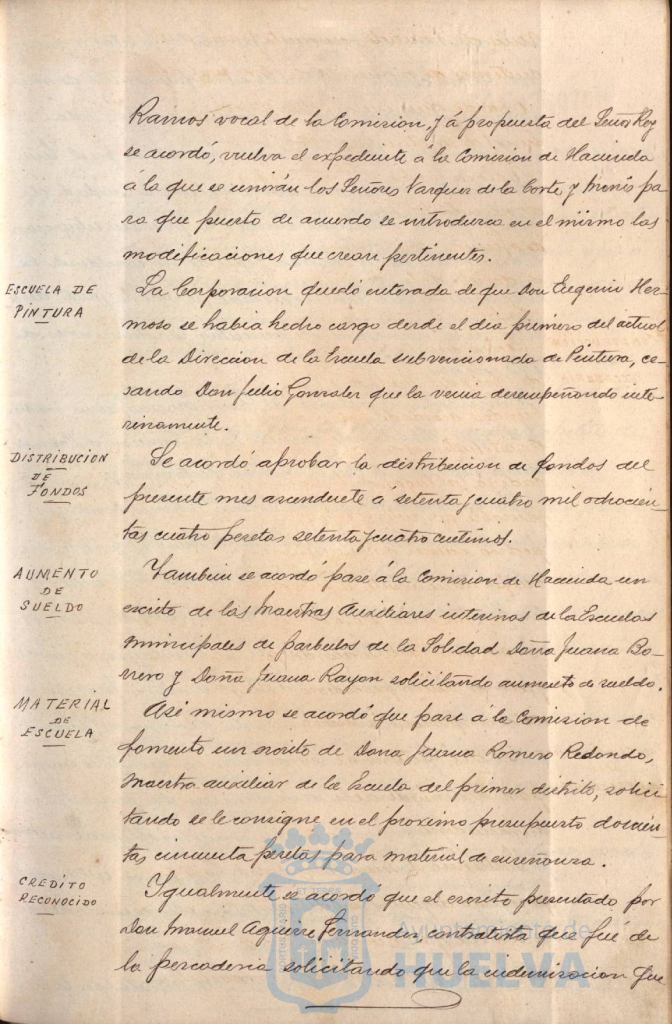 Ramos vocal de la Comision, y á propuesta del Señor Rey
se acordó, vuelva el expediente á la Comision de Hacienda
á la que se unirán los Señores Vazquez de la Corte y Monís pa
ra que puesto de acuerdo se introduzca en el mismo las
modificaciones que crean pertinentes.
ESCUELA DE
PINTURA
La Corporacion quedó enterada de que Don Eugenio Her-
moso se habia hecho cargo desde el dia primero del actual
de la Direccion de la Escuela subvencionada de Pintura, ce-
sando Don Julio Gonzalez que la venia desempeñando inte-
rinamente.
DISTRIBUCION
DE
FONDOS
Se acordó aprobar la distribucion de fondos del
presente mes ascendente á setenta y cuatro mil ochocien-
tas cuatro pesetas setenta y cuatro centimos.
AUMENTO
DE
SUELDO
Tambien se acordó pase á la Comision de Hacienda un
escrito de las Maestras Auxiliares interinas de la Escuelas
municipales de parbulos de la Soledad Doña Juana Bo-
rrero y Doña Juana Rayon solicitando aumento de sueldo.
MATERIAL
DE
ESCUELA
Asi mismo se acordó que pase á la Comision de
fomento un escrito de Doña Juana Romero Redondo,
Maestra auxiliar de la Escuela del primer distrito, solici
tando se le consigne en el proximo presupuesto doscien-
tas cincuenta pesetas para material de enseñanza.
CREDITO
RECONOCIDO
Igualmente se acordó que el escrito presentado por
Don Manuel Aguirre Fernandez, contratista que fué de
la pescaderia solicitando que la indemnizacion que
Ayuntamiento de
HUELVA